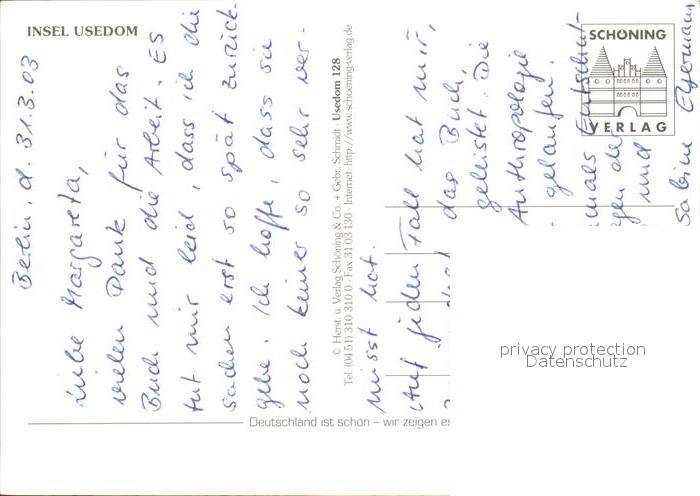 INSEL USEDOM
Berlin, d. 31.3.03
Liebe Margareta,
vielen Dank für das
Buch und die Arbeit. ES
tut mir leid, dass ich die
Sachen erst so spät zurück-
gebe. Ich hoffe, dass sie
noch keiner so sehr ver-
misst hat.
Auf jeden Fall hat mir,
das Buch,
geleistet. Die
Anthropologie
gelaufen.
und
Sabine
© Herst. u. Verlag Schöning & Co. + Gebr. Schmidt Usedom 128
Tel. (04 51) 310 310 0 · Fax 31 03 130 · Internet: http://www.schoening-verlag.de
SCHÖNING
VERLAG
privacy protection
Datenschutz
Deutschland ist schön – wir zeigen es